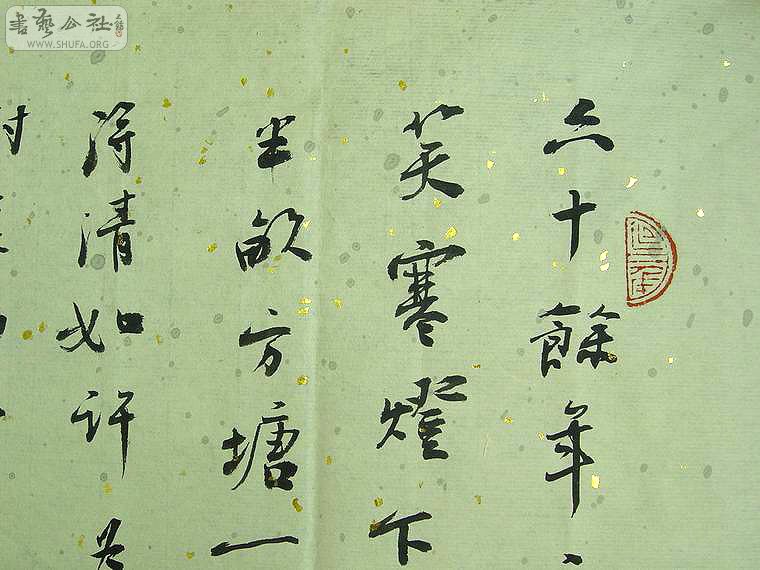 書藝公社
WWW.SHUFA.ORG
六十餘年
笑寒燈下
半畝方塘一
得清如許為